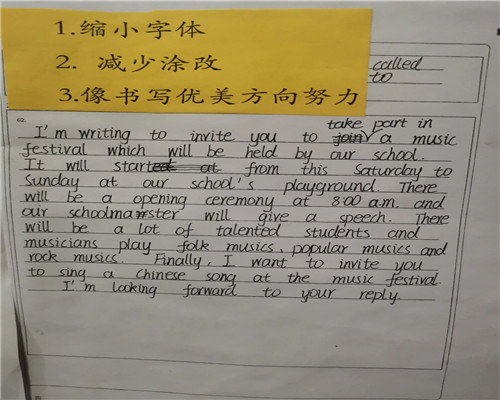 1.缩小字体
2. 减少涂改
3.像书写优美方向努力
called
to
take part in
I'm writing to invite you to join a music
festival which will be held by our school.
It will started at from this Saturday to
Sunday at our school's playground. There
will be a opening ceremony at 8:00 a.m. and
our schoolmaster will give a speech. There
will be a lot of talented students and
musicians play folk musics、popular musics and
rock musics. Finally, I want to invite you
to sing a Chinese song at the music festival.
I'm looking forward to your reply.